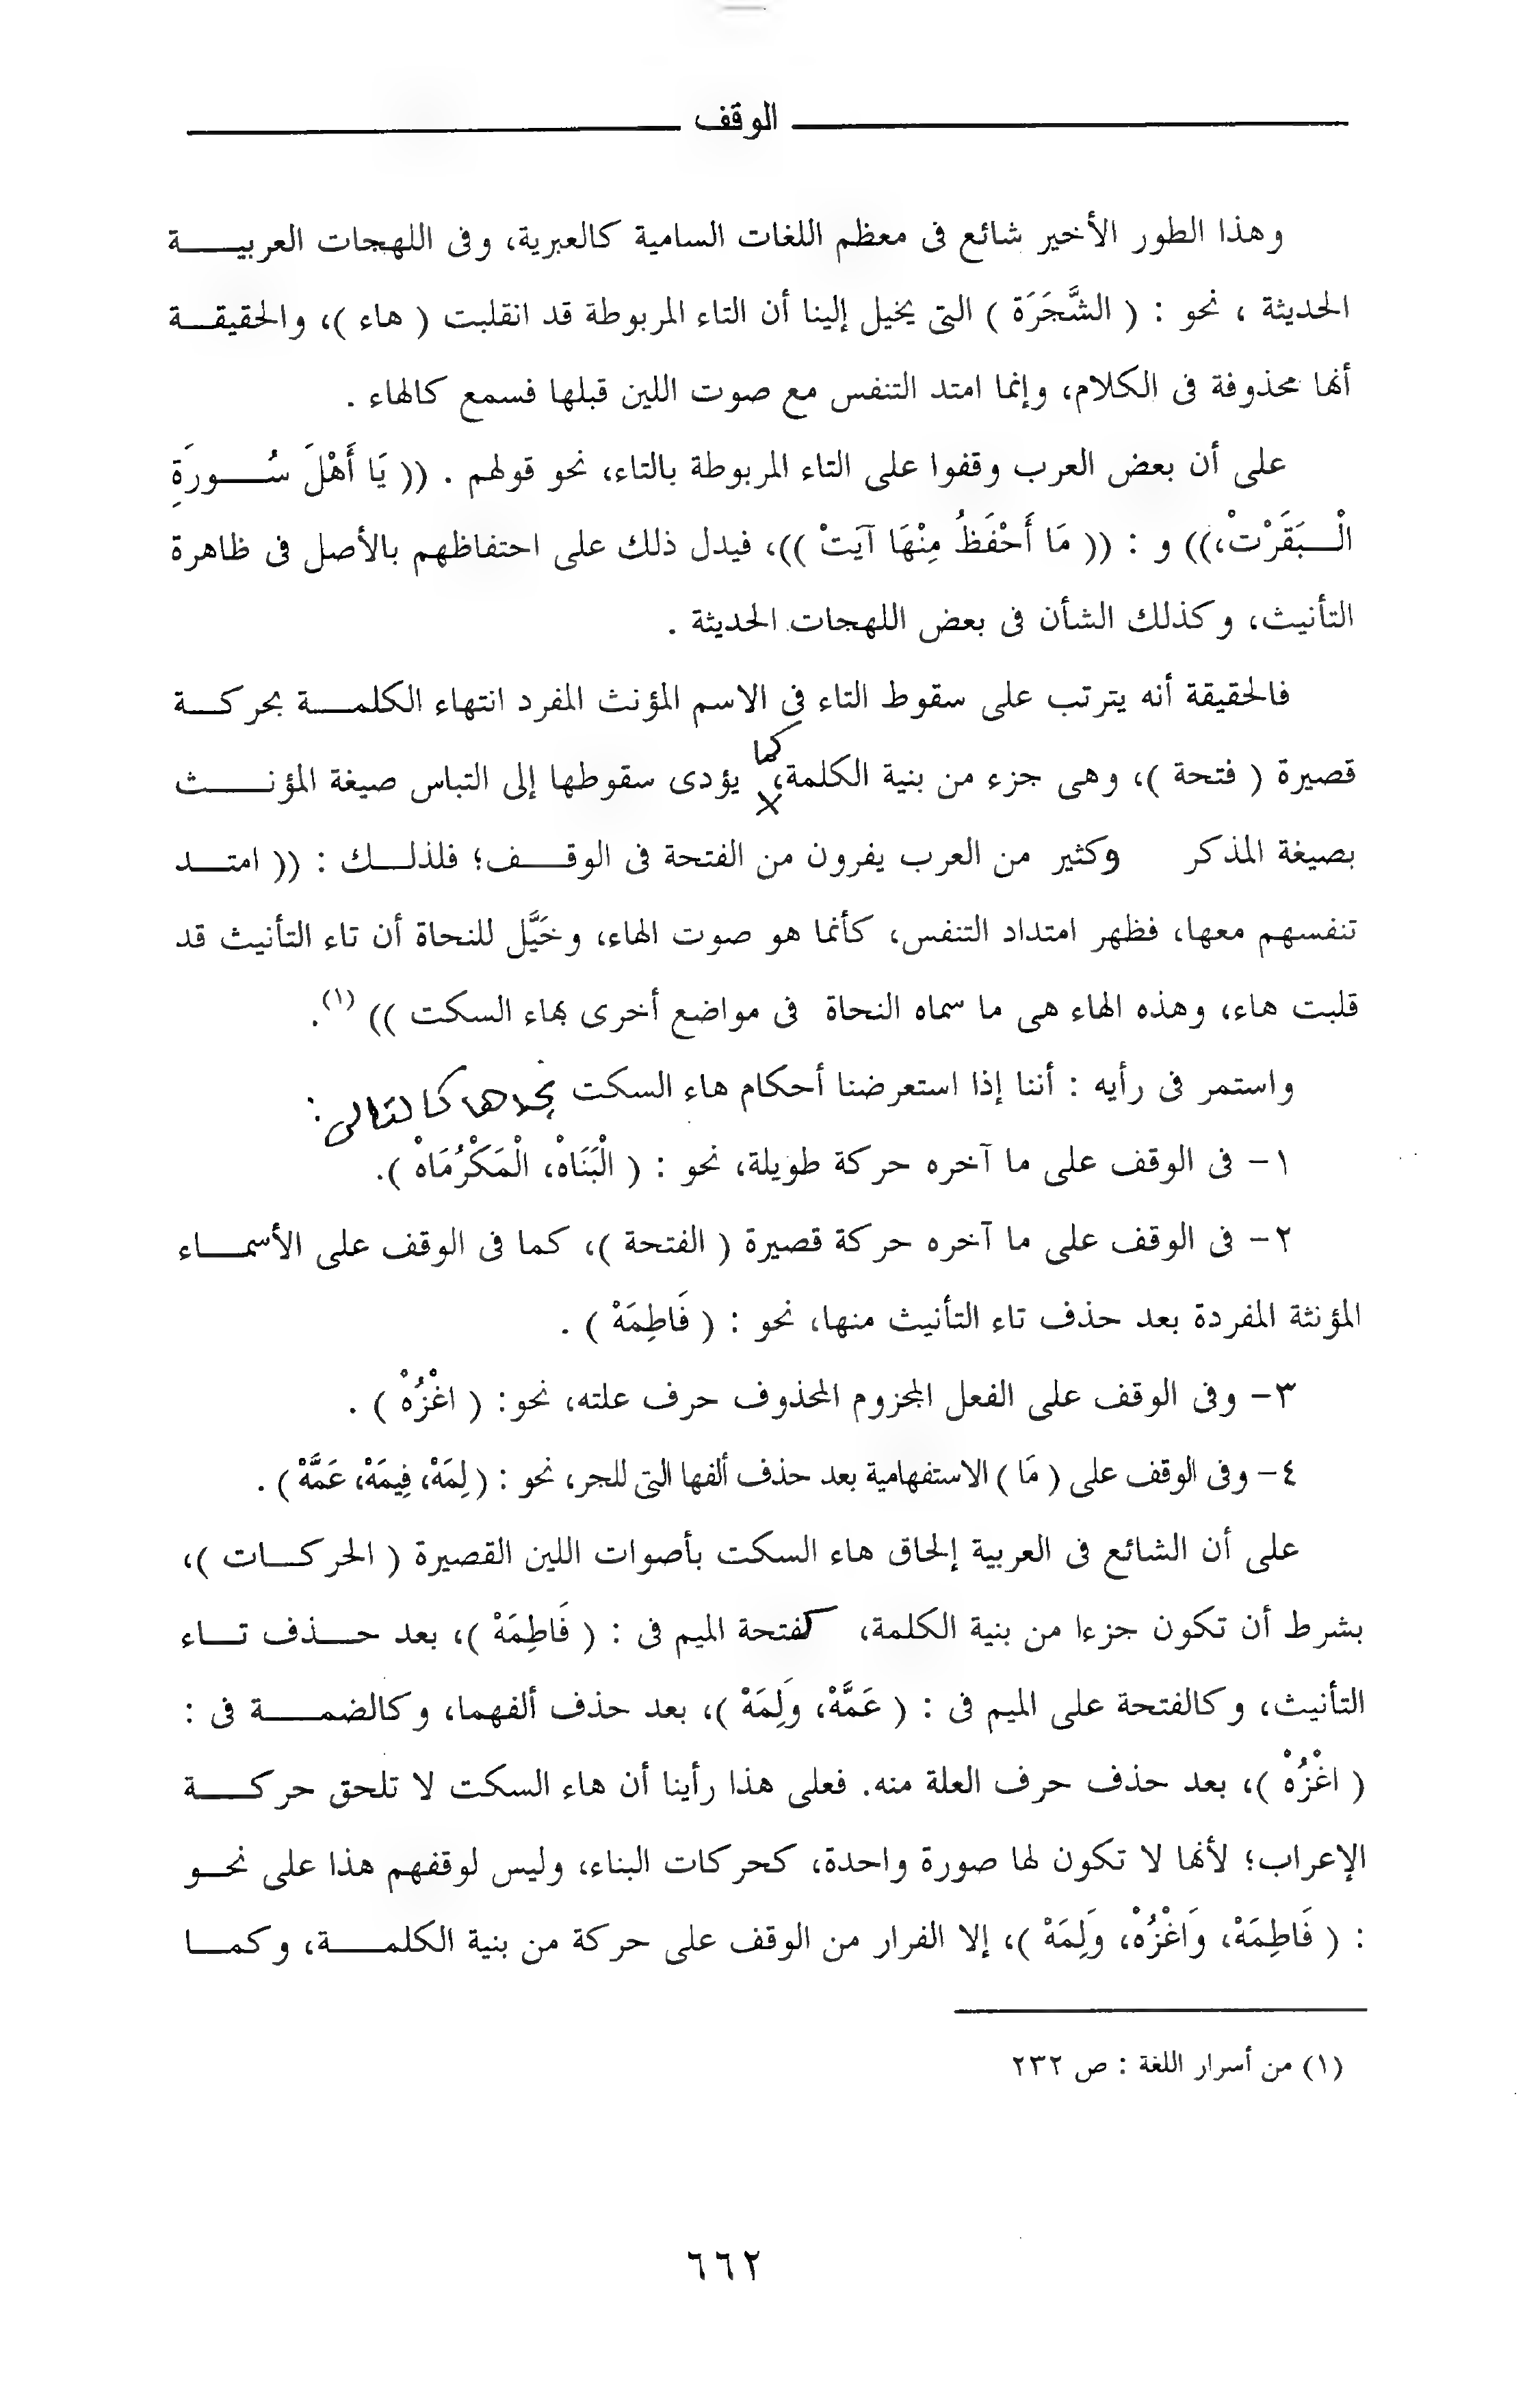 الوقف
وهذا الطور الأخير شائع فى معظم اللغات السامية كالعبرية، وفى اللهجات العربيــــة
الحديثة ، نحو : ( الشَّجَرَة ) التى يخيل إلينا أن التاء المربوطة قد انقلبت ( هاء )، والحقيقــة
أنها محذوفة فى الكلام، وإنما امتد التنفس مع صوت اللين قبلها فسمع كالهاء .
على أن بعض العرب وقفوا على التاء المربوطة بالتاء، نحو قولهم . (( يَا أَهْلَ سُــــورَةِ
الْـــبَقَرْتْ،)) و : (( مَا أَحْفَظُ مِنْهَا آيَتْ ))، فيدل ذلك على احتفاظهم بالأصل فى ظاهرة
التأنيث، وكذلك الشأن فى بعض اللهجات الحديثة .
فالحقيقة أنه يترتب على سقوط التاء فى الاسم المؤنث المفرد انتهاء الكلمــــة بحركــــة
قصيرة ( فتحة )، وهى جزء من بنية الكلمة، كما يؤدى سقوطها إلى التباس صيغة المؤنــــــث
بصيغة المذكر وكثير من العرب يفرون من الفتحة فى الوقــــف؛ فلذلــــك : (( امتــــد
تنفسهم معها، فظهر امتداد التنفس، كأنما هو صوت الهاء، وخَيَّل للنحاة أن تاء التأنيث قد
قلبت هاء، وهذه الهاء هى ما سماه النحاة فى مواضع أخرى بهاء السكت )) (١).
واستمر فى رأيه : أننا إذا استعرضنا أحكام هاء السكت نجدها كالتالى :
١- فى الوقف على ما آخره حركة طويلة، نحو : ( الْبَنَاهْ، الْمَكْرُمَاهْ ).
٢- فى الوقف على ما آخره حركة قصيرة ( الفتحة )، كما فى الوقف على الأسمــــاء
المؤنثة المفردة بعد حذف تاء التأنيث منها، نحو : ( فَاطِمَهْ ) .
٣- وفى الوقف على الفعل المجزوم المحذوف حرف علته، نحو: ( اغْزُهْ ) .
٤- وفى الوقف على ( مَا ) الاستفهامية بعد حذف ألفها التى للجر، نحو : ( لِمَهْ، فِيمَهْ، عَمَّهْ ) .
على أن الشائع فى العربية إلحاق هاء السكت بأصوات اللين القصيرة ( الحركــــات )،
بشرط أن تكون جزءا من بنية الكلمة، كفتحة الميم فى : ( فَاطِمَهْ )، بعد حــــذف تــــاء
التأنيث، وكالفتحة على الميم فى : ( عَمَّهْ، وَلِمَهْ )، بعد حذف ألفهما، وكالضمــــة فى :
( اغْزُهْ )، بعد حذف حرف العلة منه. فعلى هذا رأينا أن هاء السكت لا تلحق حركــــة
الإعراب؛ لأنها لا تكون لها صورة واحدة، كحركات البناء، وليس لوقفهم هذا على نحــو
: ( فَاطِمَهْ، وَاغْزُهْ، وَلِمَهْ )، إلا الفرار من الوقف على حركة من بنية الكلمــــة، وكمــــا
(١) من أسرار اللغة : ص ٢٣٢
٦٦٢